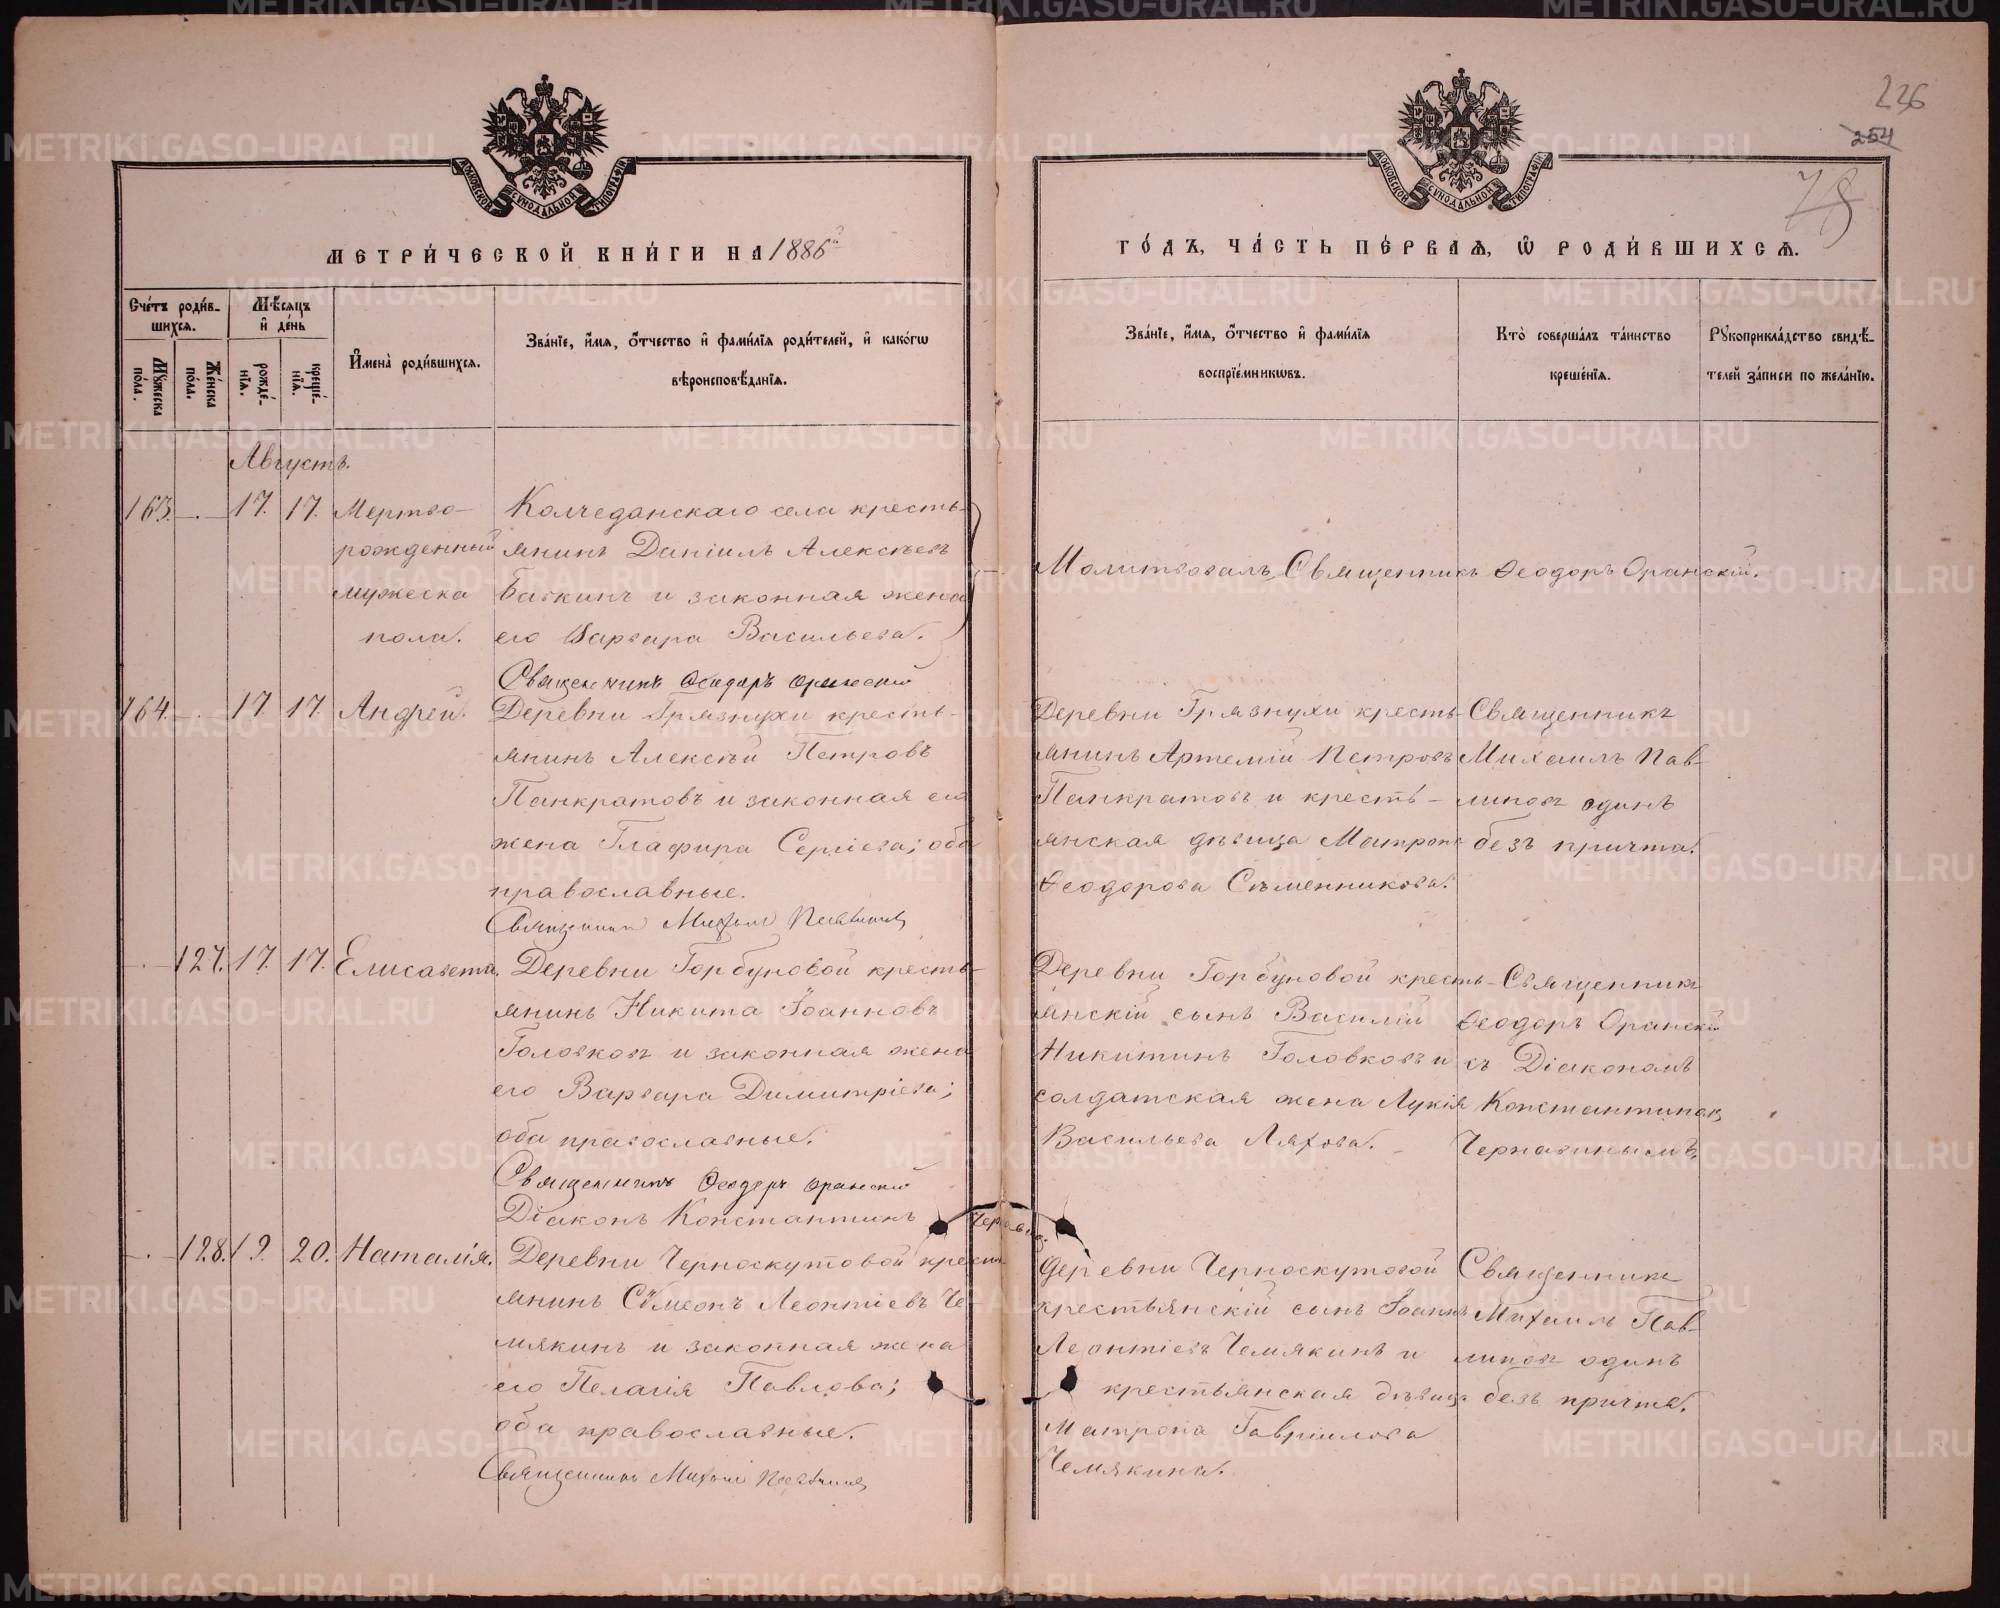 236
254
78
МОСКОВСКОЙ СѴНОДАЛЬНОЙ ТИПОГРАФІИ
МОСКОВСКОЙ СѴНОДАЛЬНОЙ ТИПОГРАФІИ
МЕТРИ́ЧЕСКОЙ КНИ́ГИ НА 1886й
ГО́ДЪ, ЧА́СТЬ ПЕ́РВАѦ, Ѡ҆ РОДИ́ВШИХСѦ.
Сче́тъ роди́в-
шихсѧ.
Мꙋ́жеска по́ла.
Же́нска по́ла.
Мѣ́сѧцъ
и҆ де́нь
рожде́-
нїѧ.
креще́-
нїѧ.
И҆мена̀ роди́вшихсѧ.
Зва́нїе, и҆́мѧ, ѻ҆́тчество и҆ фами́лїѧ роди́телей, и҆ како́гѡ
вѣроисповѣ́данїѧ.
Зва́нїе, и҆́мѧ, ѻ҆́тчество и҆ фами́лїѧ
воспрїе́мникѡвъ.
Кто̀ соверша́лъ та́инство
креще́нїѧ.
Рꙋкоприкла́дство свидѣ́-
телей за́писи по жела́нїю.
Августъ.
163. — . — 17. 17. Мертво-
рожденный
мужеска
пола.
Колчеданскаго села кресть-
янинъ Даніилъ Алексѣевъ
Бабкинъ и законная жена
его Варвара Васильева.
Священникъ Ѳеодоръ Оранскій
Молитвовалъ Священникъ Ѳеодоръ Оранскій.
164. — . — 17. 17. Андрей.
Деревни Грязнухи кресть-
янинъ Алексѣй Петровъ
Панкратовъ и законная его
жена Глафира Сергіева; оба
православные.
Священникъ Михаилъ Павлиновъ
Деревни Грязнухи кресть-
янинъ Артемій Петровъ
Панкратовъ и кресть-
янская дѣвица Матрона
Ѳеодорова Сѣменникова.
Священникъ
Михаилъ Пав-
линовъ одинъ
безъ причта.
— . — 127. 17. 17. Елисавета.
Деревни Горбуновой кресть-
янинъ Никита Іоанновъ
Головковъ и законная жена
его Варвара Димитріева;
оба православные.
Священникъ Ѳеодоръ Оранскій
Діаконъ Константинъ Чернавинъ.
Деревни Горбуновой кресть-
янскій сынъ Василій
Никитинъ Головковъ и
солдатская жена Лукія
Васильева Ляхова.
Священникъ
Ѳеодоръ Оранскій
съ Діакономъ
Константиномъ
Чернавинымъ.
— . — 128. 19. 20. Наталія.
Деревни Черноскутовой кресть-
янинъ Сѵмеонъ Леонтіевъ Че-
мякинъ и законная жена
его Пелагія Павлова;
оба православные.
Священникъ Михаилъ Павлиновъ
Деревни Черноскутовой
крестьянскій сынъ Іоаннъ
Леонтіевъ Чемякинъ и
крестьянская дѣвица
Матрона Гавріилова
Чемякина.
Священникъ
Михаилъ Пав-
линовъ одинъ
безъ причта.
METRIKI.GASO-URAL.RU